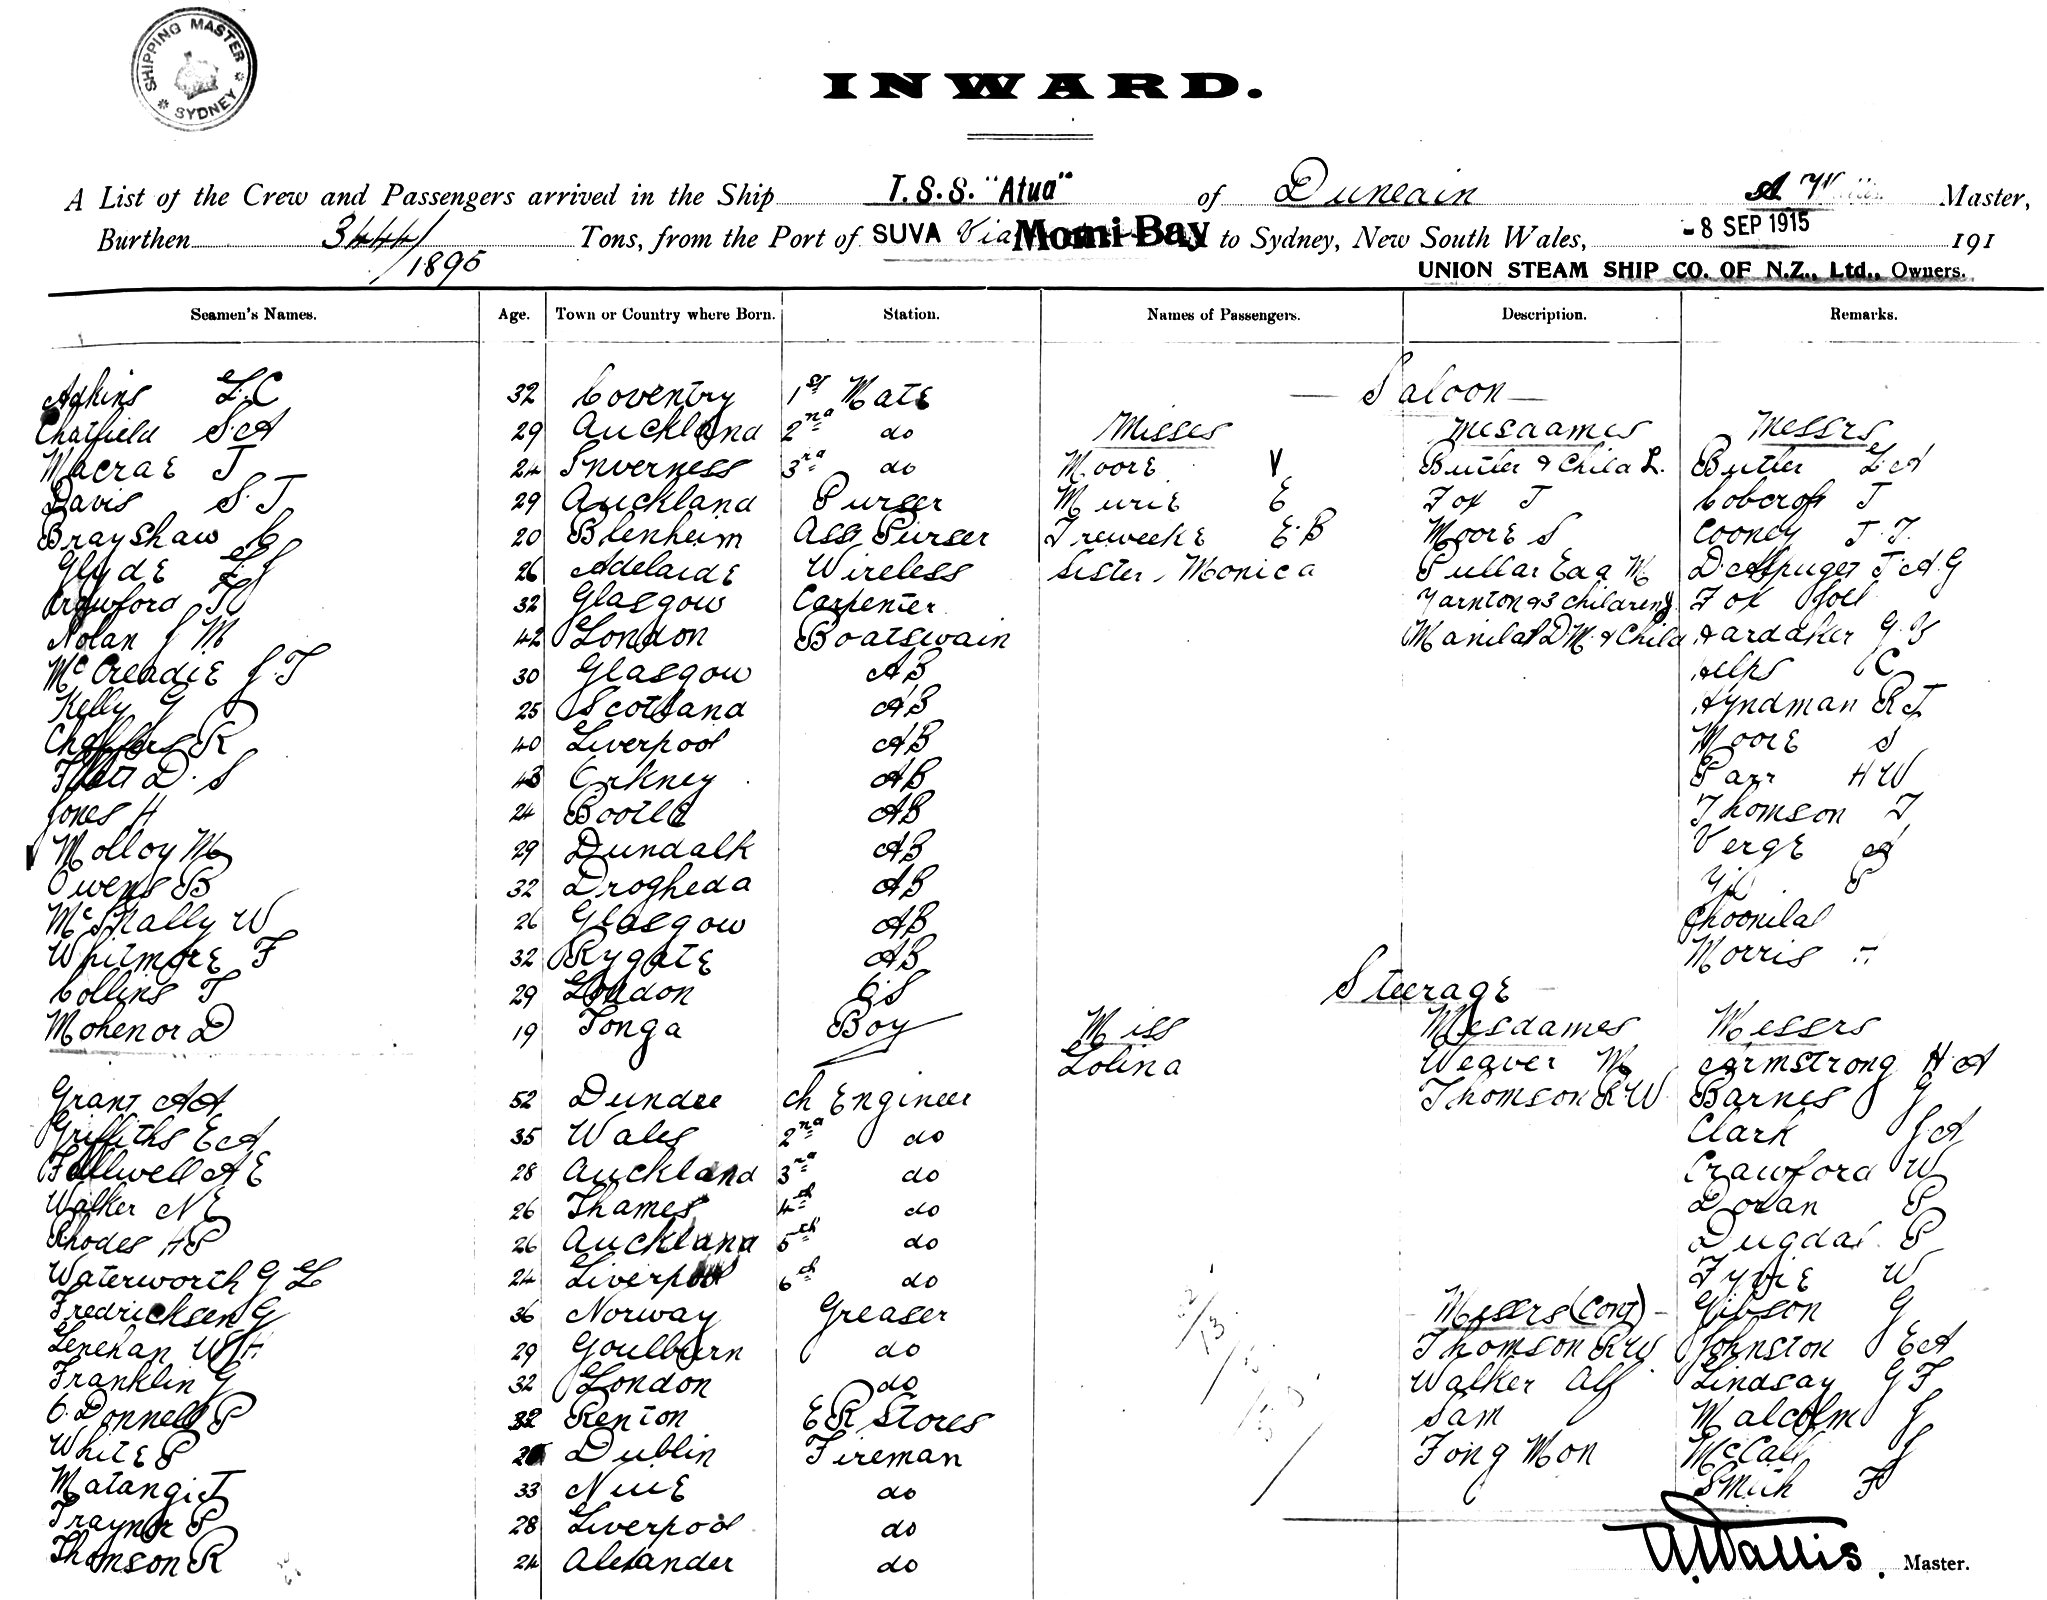 SHIPPING MASTER
SYDNEY
INWARD.
A List of the Crew and Passengers arrived in the Ship T.S.S. "Atua" of Dunedin A Wallis Master,
Burthen 3444/1895 Tons, from the Port of SUVA Via Momi Bay to Sydney, New South Wales, -8 SEP 1915 191
UNION STEAM SHIP CO. OF N.Z., Ltd., Owners.
Seamen's Names. Age. Town or Country where Born. Station. Names of Passengers. Description. Remarks.
Saloon
Adkins L.C 32 Coventry 1st Mate
Chatfield S.A 29 Auckland 2nd do Misses Mesdames Messrs
Macrae J 24 Inverness 3rd do Moore V Butler & Child L. Butler L.A
Davis S.J 29 Auckland Purser Murie E Fox J Cobcroft J
Brayshaw C 20 Blenheim Ass Purser Treweeke E.B Moore S Cooney J.J.
Glyde 26 Adelaide Wireless Sister Monica Pullar Eda M J.A.G
Crawford 32 Glasgow Carpenter Yarnton & 3 children Fox Joel
Nolan J M 42 London Boatswain Manilal D M. & Child Hardaker G.
McCreadie J.T 30 Glasgow AB Helps C
Kelly G 25 Scotland AB Hyndman R J
R 40 Liverpool AB Moore S
Flett D.S 43 Orkney AB Parr H W
Jones H 24 Bootle AB Thomson J
Molloy M 29 Dundalk AB Verge A
Owens B 32 Drogheda AB
McNally W 26 Glasgow AB Choonilal
Whitmore F 32 Rygate AB Morris H
Steerage
Collins T 29 London O.S
Mohenor D 19 Tonga Boy Miss Mesdames Messrs
Lolina Weaver M Armstrong H A
Grant A A 52 Dundee ch Engineer Thomson R.W Barnes G
Griffiths E A 35 Wales 2nd do Clark J.A
Fallwell A E 28 Auckland 3rd do Crawford W
Walker N E 26 Thames 4th do Doran P
Rhodes H P 26 Auckland 5th do Dugdal P
Waterworth G L 24 Liverpool 6th do Fyvie W
Fredricksen G 36 Norway Greaser Messrs (Cont) Gibson G
Lenehan W H 29 Goulburn do Thomson R W Johnston E A
Franklin G 32 London do Walker Alf Lindsay G F
O.Donnell P 32 Renton E R Stores Sam Malcolm J
White P Dublin Fireman Fong Mon McCall J
Matangi T 33 Niue do Smith F
Traynor P 28 Liverpool do
Thomson R 24 Alexander do
A Wallis. Master.